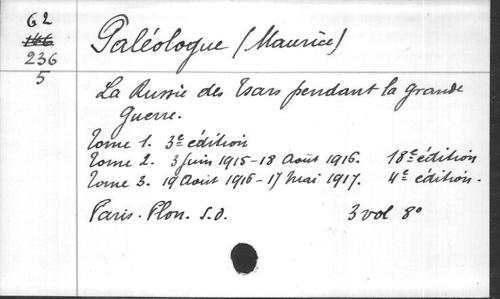 62
166
236
5
Paléologue (Maurice)
La Russie des Tsars pendant la grande
Guerre.
Tome 1. 3e édition
Tome 2. 3 Juin 1915-18 Août 1916. 18e édition
Tome 3. 19 Août 1916-17 Mai 1917. 4e édition.
Paris. Plon. S.D. 3 vol 8°